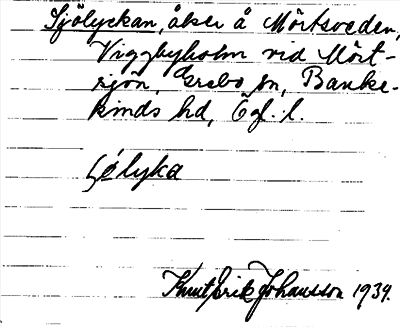 Sjölyckan, åker å Mörtsveden,
Viggbyholm vid Mört-
sjön, Grebo sn, Banke-
kinds hd, Ögl. l.
ʃólyka
Knut Erik Johansson 1939.